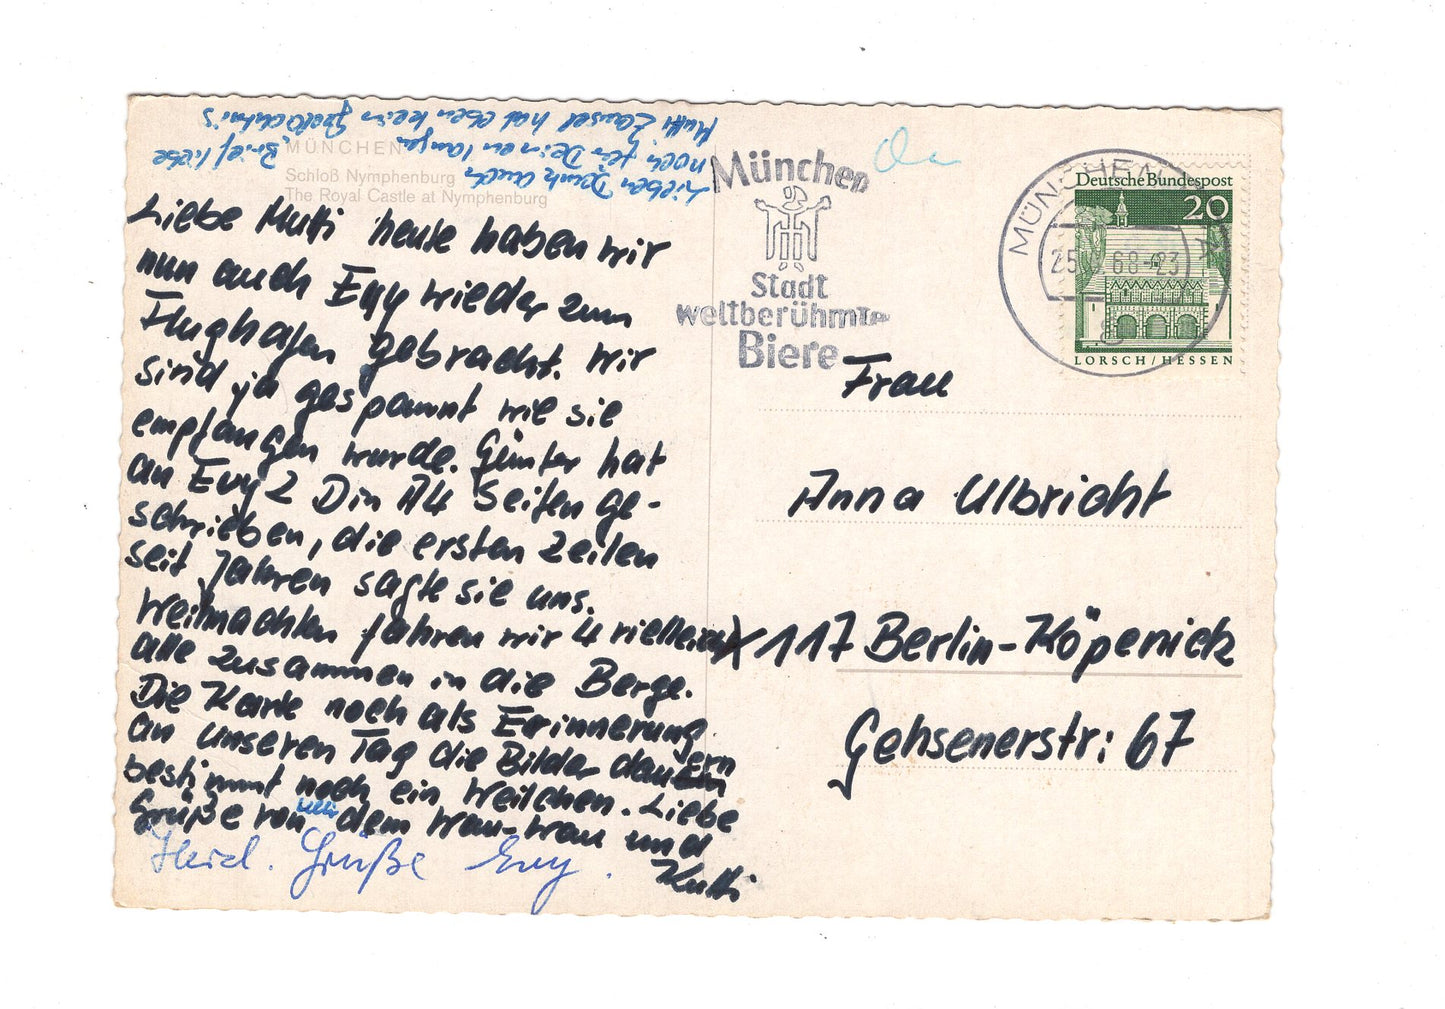 MÜNCHEN
Schloß Nymphenburg
The Royal Castle at Nymphenburg
Lieben Dank auch
noch für Deinen langen Brief liebe
Mutti hat eben kein
Liebe Mutti heute haben wir
nun auch Evy wieder zum
Flughafen gebracht. Wir
sind ja gespannt wie sie
empfangen wurde. Günter hat
an Evy 2 Din A4 Seiten ge-
schrieben, die ersten Zeilen
seit Jahren sagte sie uns.
Weihnachten fahren wir 4 vielleicht
alle zusammen in die Berge.
Die Karte noch als Erinnerung
an unseren Tag die Bilder dauern
bestimmt noch ein Weilchen. Liebe
Grüße von dem Wau-Wau und
Kutti
Herzl. Grüße Evy.
München
Stadt
weltberühmter
Biere
MÜNCHEN
25 68-23
Deutsche Bundespost
20
LORSCH/HESSEN
Frau
Anna Ulbricht
X 117 Berlin-Köpenick
Gehsenerstr: 67